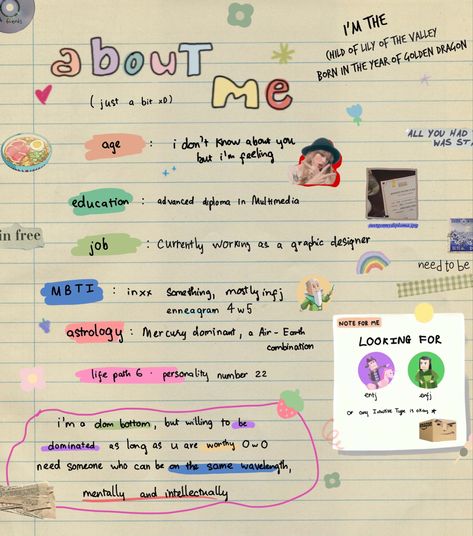 friends
about me
( just a bit xD)
I'M THE
CHILD OF LILY OF THE VALLEY
BORN IN THE YEAR OF GOLDEN DRAGON
age : i don't know about you
but i'm feeling
ALL YOU HAD
WAS STA
education : advanced diploma in Multimedia
in free
job : Currently working as a graphic designer
need to be
MBTI : inxx something, mostly infj
enneagram 4w5
astrology : Mercury dominant, a Air - Earth
combination
life path 6 · personality number 22
NOTE FOR ME
LOOKING FOR
entj
enfj
or any Intuitive Type is okay
i'm a dom bottom, but willing to be
dominated as long as u are worthy OwO
need someone who can be on the same wavelength,
mentally and intellectually